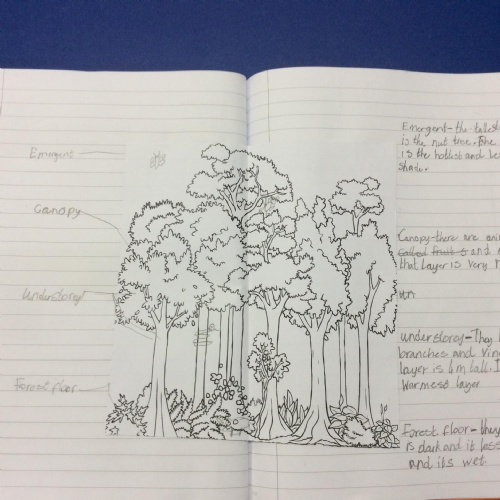 Emergent
Canopy
Understory
Forest floor
Emergent-the tallest
is the nut tree. The
is the hottest and
shade.
Canopy-there are
called fruit s and
that layer is very
understorgy-They
branches and Vine
layer is 4m tall. I
warmest layer
Forest floor- they
is dark and it less
and its wet.